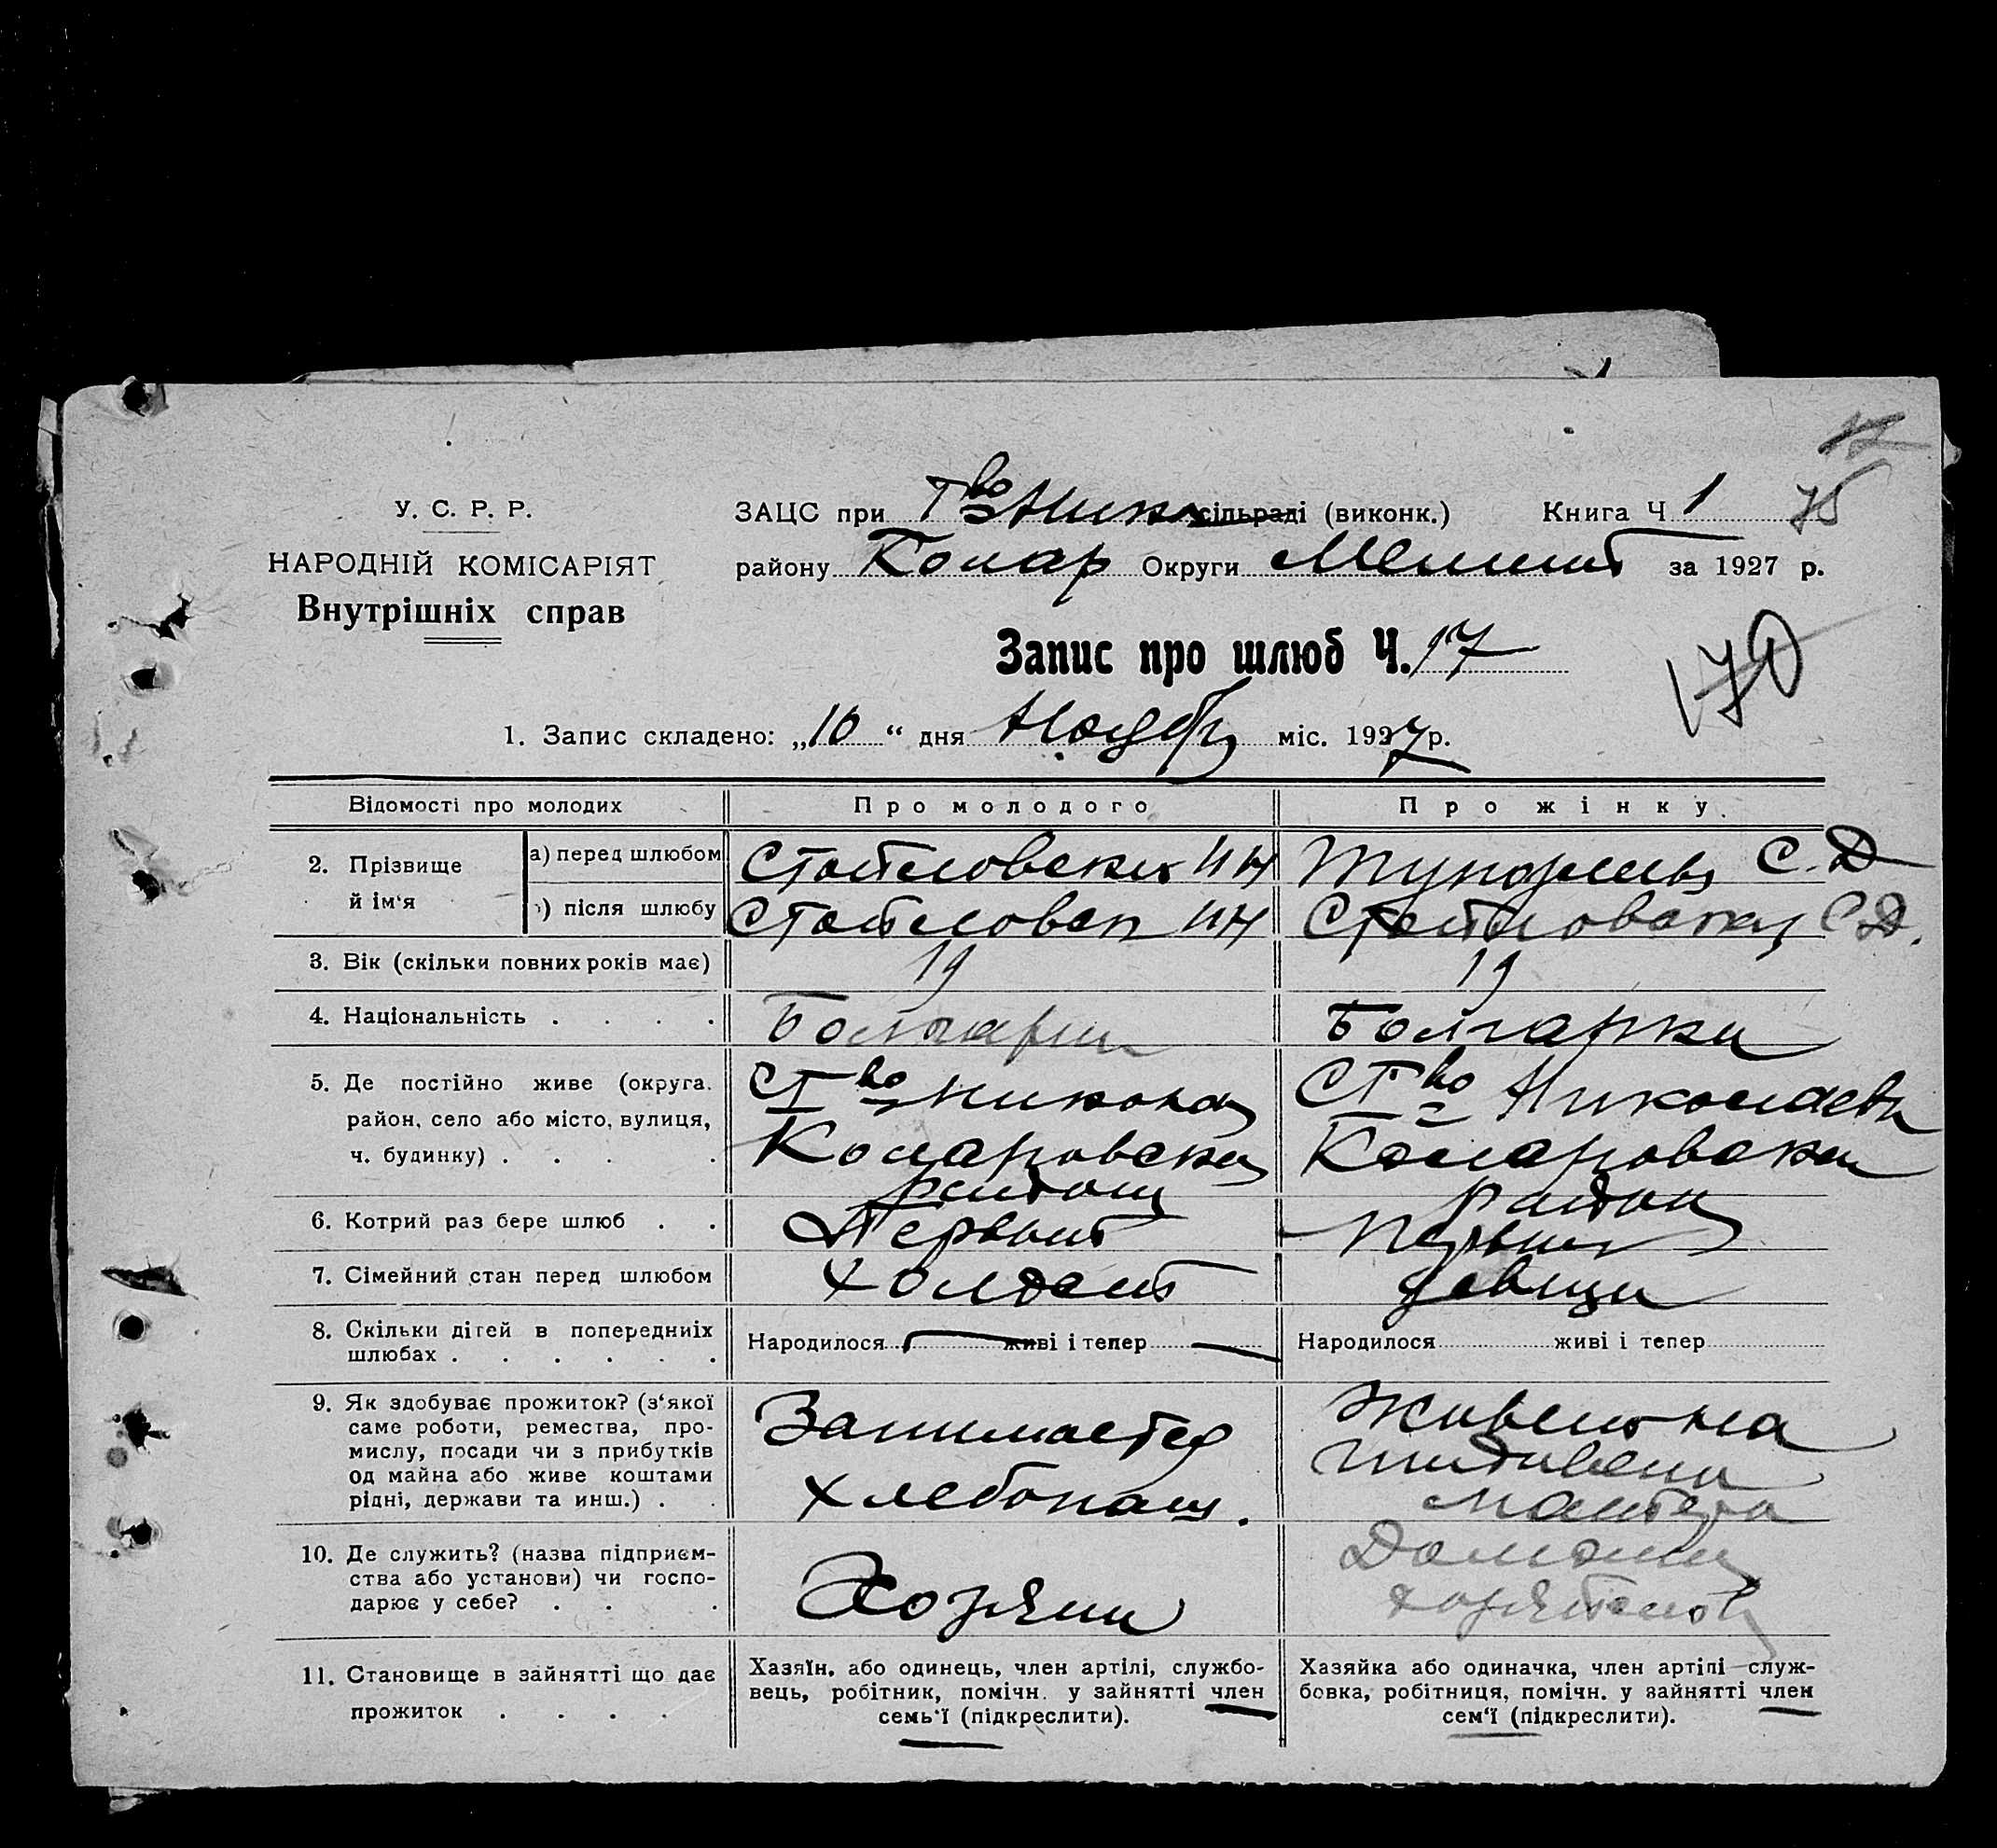 У. С. Р. Р.
НАРОДНІЙ КОМІСАРІЯТ
Внутрішніх справ
ЗАЦС при Т во Ник сільраді (виконк.) Книга Ч 1
75
району Комар Округи Мелит за 1927 р.
Запис про шлюб Ч. 17
170
1. Запис складено: „10“ дня Ноября міс. 1927 р.
Відомості про молодих Про молодого Про жінку
2. Прізвище й ім‘я
а) перед шлюбом И Н С. Д
) після шлюбу И Н С. Д.
3. Вік (скільки повних років має) 19 19
4. Національність . . . . Болгарин Болгарка
5. Де постійно живе (округа, район, село або місто, вулиця, ч. будинку) . . . .
Ст во Никола
Комаровска
район
Ст во Николаевк
Комаровска
район
6. Котрий раз бере шлюб . . Первый Первый
7. Сімейний стан перед шлюбом Холост девица
8. Скільки дітей в попередниіх шлюбах . . . . . . Народилося живі і тепер Народилося живі і тепер
9. Як здобуває прожиток? (з‘якої саме роботи, ремества, промислу, посади чи з прибутків од майна або живе коштами рідні, держави та инш.) . .
Занимается
хлебопаш.
Живет на
иждивени
10. Де служить? (назва підприємства або установи) чи господарює у себе? . . .
Хозяин
Домашн
11. Становище в зайнятті що дає прожиток . . . .
Хазяїн, або одинець, член артілі, службо-
вець, робітник, помічн. у зайнятті член
семь‘ї (підкреслити).
Хазяйка або одиначка, член артілі служ-
бовка, робітниця, помічн. у зайнятті член
сем‘ї (підкреслити).